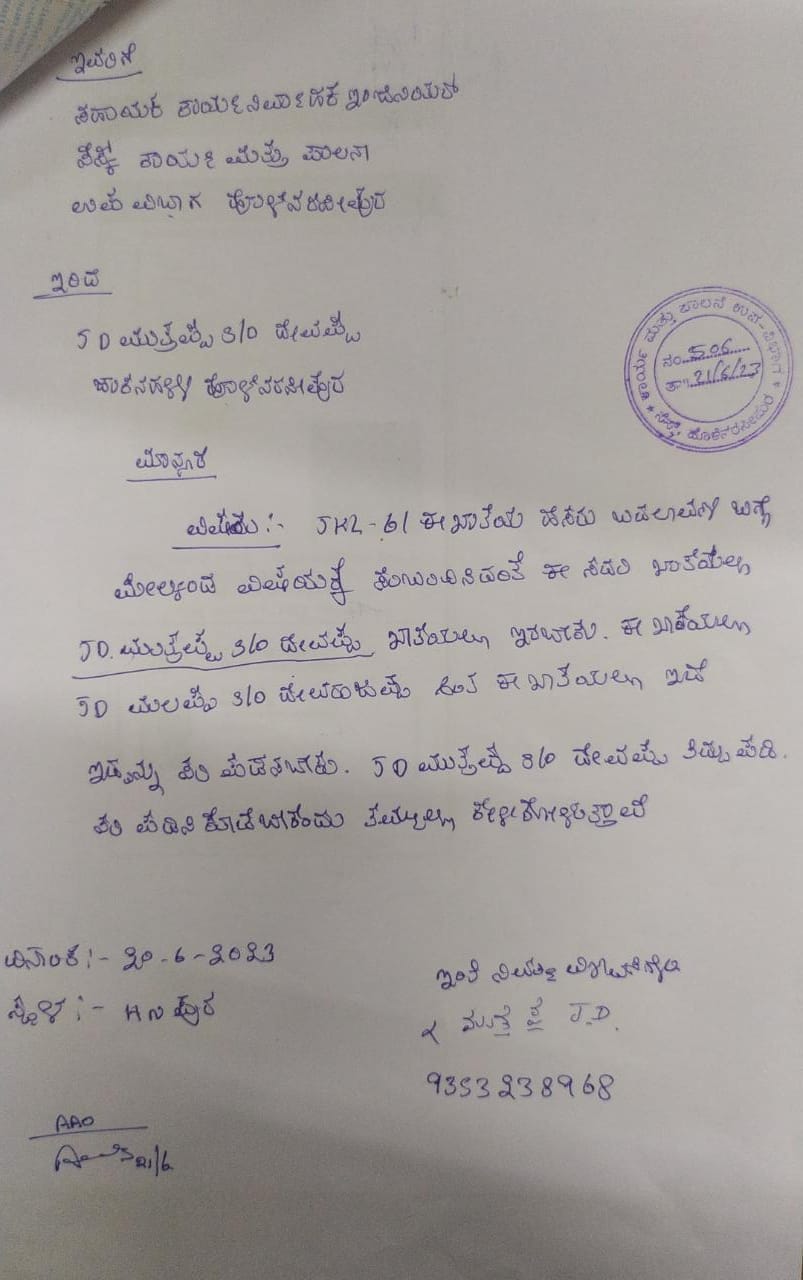 ಇವರಿಗೆ
ಸಹಾಯಕ ಕಾರ್ಯನಿರ್ವಾಹಕ ಇಂಜಿನಿಯರ್
ಸೆಸ್ಕ್ ಕಾರ್ಯ ಮತ್ತು ಪಾಲನಾ
ಉಪ ವಿಭಾಗ ಹೊಳೆನರಸೀಪುರ
ಇಂದ
J D ಮುತ್ತಪ್ಪ S/O ದೇವಪ್ಪ
ಹೊಳೆನರಸೀಪುರ
ಕಾರ್ಯ ಮತ್ತು ಪಾಲನೆ ಉಪ-ವಿಭಾಗ
ನಂ. 506
ತಾ॥ 21/6/23
ಸೆಸ್ಕ್, ಹೊಳೆನರಸೀಪುರ
ಮಾನ್ಯರೆ
ವಿಷಯ :- JHL-61 ಈ ಖಾತೆಯ ಹೆಸರು ಬದಲಾವಣೆ ಬಗ್ಗೆ
ಮೇಲ್ಕಂಡ ವಿಷಯಕ್ಕೆ ಸಂಬಂಧಿಸಿದಂತೆ ಈ ಸದರಿ ಖಾತೆಯಲ್ಲಿ
JD. ಮುತ್ತಪ್ಪ S/O ದೇವಪ್ಪ ಖಾತೆಯಲ್ಲಿ ಇರಬೇಕು. ಈ ಖಾತೆಯಲ್ಲಿ
JD S/O ಅಂತ ಈ ಖಾತೆಯಲ್ಲಿ ಇದೆ
ಇದನ್ನು ಸರಿ ಪಡಿಸಬೇಕು. J D ಮುತ್ತಪ್ಪ S/O ದೇವಪ್ಪ ತಿದ್ದುಪಡಿ.
ಸರಿ ಪಡಿಸಿ ಕೊಡಬೇಕೆಂದು ತಮ್ಮಲ್ಲಿ ಕೇಳಿಕೊಳ್ಳುತ್ತೇವೆ
ದಿನಾಂಕ :- 20-6-2023
ಸ್ಥಳ :- HN ಪುರ
ಇಂತಿ ನಿಮ್ಮ
ಮುತ್ತಪ್ಪ J.D.
9353238968
AAO
21/6